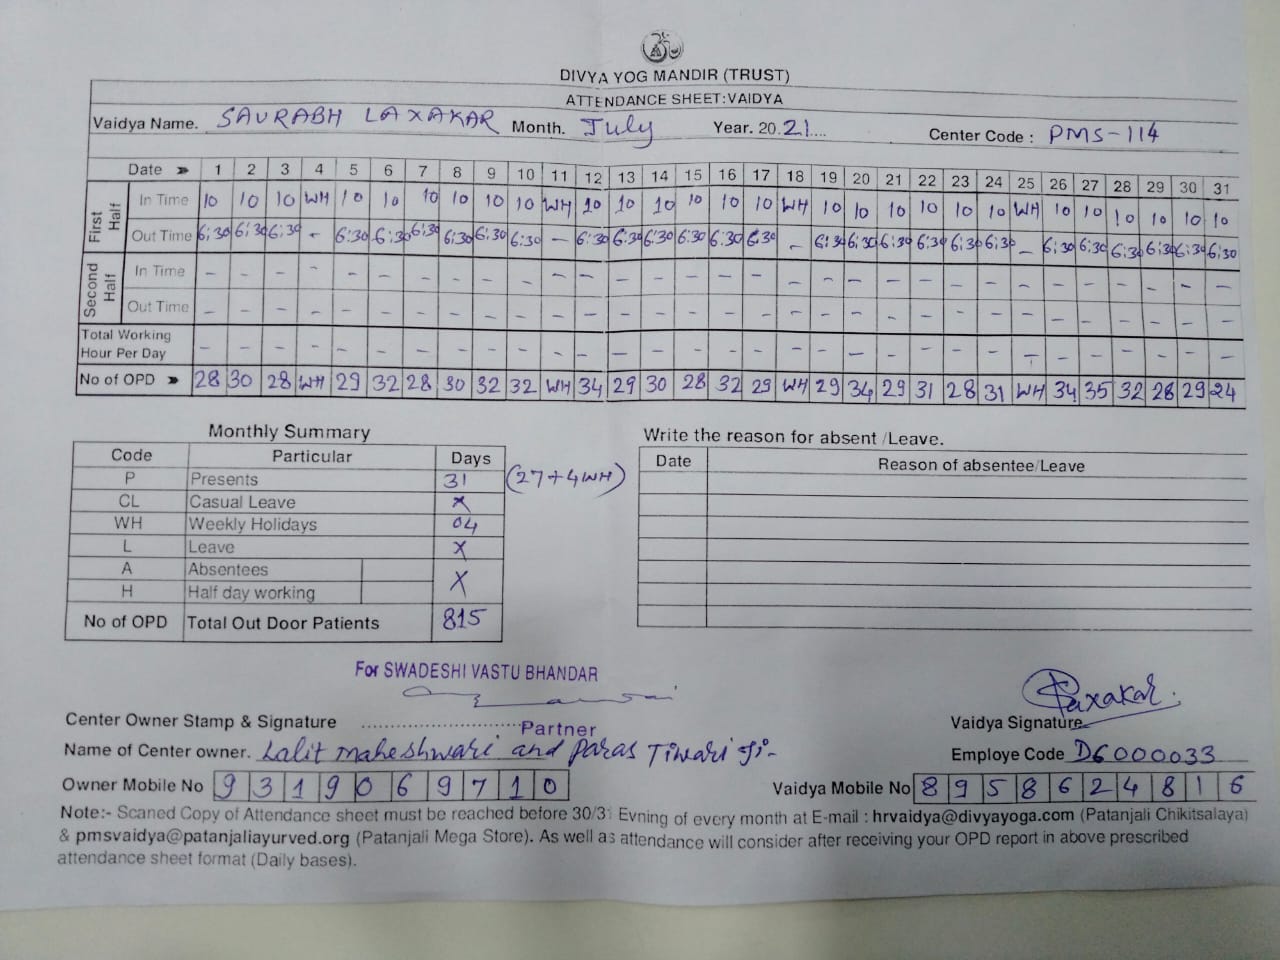 DIVYA YOG MANDIR (TRUST)
ATTENDANCE SHEET:VAIDYA
Vaidya Name. SAURABH LAXAKAR Month. July Year. 20.21.... Center Code : PMS-114
Date 1 2 3 4 5 6 7 8 9 10 11 12 13 14 15 16 17 18 19 20 21 22 23 24 25 26 27 28 29 30 31
First Half
In Time 10 10 10 WH 10 10 10 10 10 10 WH 10 10 10 10 10 10 WH 10 10 10 10 10 10 WH 10 10 10 10 10 10
Out Time 6:30 6:30 6:30 - 6:30 6:30 6:30 6:30 6:30 6:30 - 6:30 6:30 6:30 6:30 6:30 6:30 - 6:30 6:30 6:30 6:30 6:30 6:30 - 6:30 6:30 6:30 6:30 6:30 6:30
Second Half
In Time - - - - - - - - - - - - - - - - - - - - - - - - - - - - - - -
Out Time - - - - - - - - - - - - - - - - - - - - - - - - - - - - - - -
Total Working
Hour Per Day - - - - - - - - - - - - - - - - - - - - - - - - - - - - - - -
No of OPD 28 30 28 WH 29 32 28 30 32 32 WH 34 29 30 28 32 29 WH 29 34 29 31 28 31 WH 34 35 32 28 29 24
Monthly Summary
Code Particular Days
P Presents 31 (27+4WH)
CL Casual Leave x
WH Weekly Holidays 04
L Leave X
A Absentees X
H Half day working
No of OPD Total Out Door Patients 815
Write the reason for absent /Leave.
Date Reason of absentee/Leave
For SWADESHI VASTU BHANDAR
Center Owner Stamp & Signature ........................... Partner
Name of Center owner. Lalit maheshwari and Paras Tiwari Ji-
Owner Mobile No 9319069710
Laxakar
Vaidya Signature
Employe Code D6000033
Vaidya Mobile No 8958624816
Note:- Scaned Copy of Attendance sheet must be reached before 30/31 Evning of every month at E-mail : hrvaidya@divyayoga.com (Patanjali Chikitsalaya)
& pmsvaidya@patanjaliayurved.org (Patanjali Mega Store). As well as attendance will consider after receiving your OPD report in above prescribed
attendance sheet format (Daily bases).